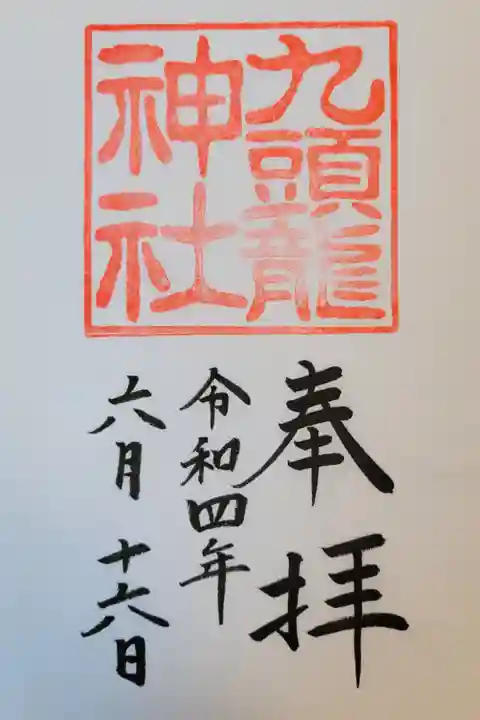 九頭龍
神社
奉拝
令和四年
六月十六日